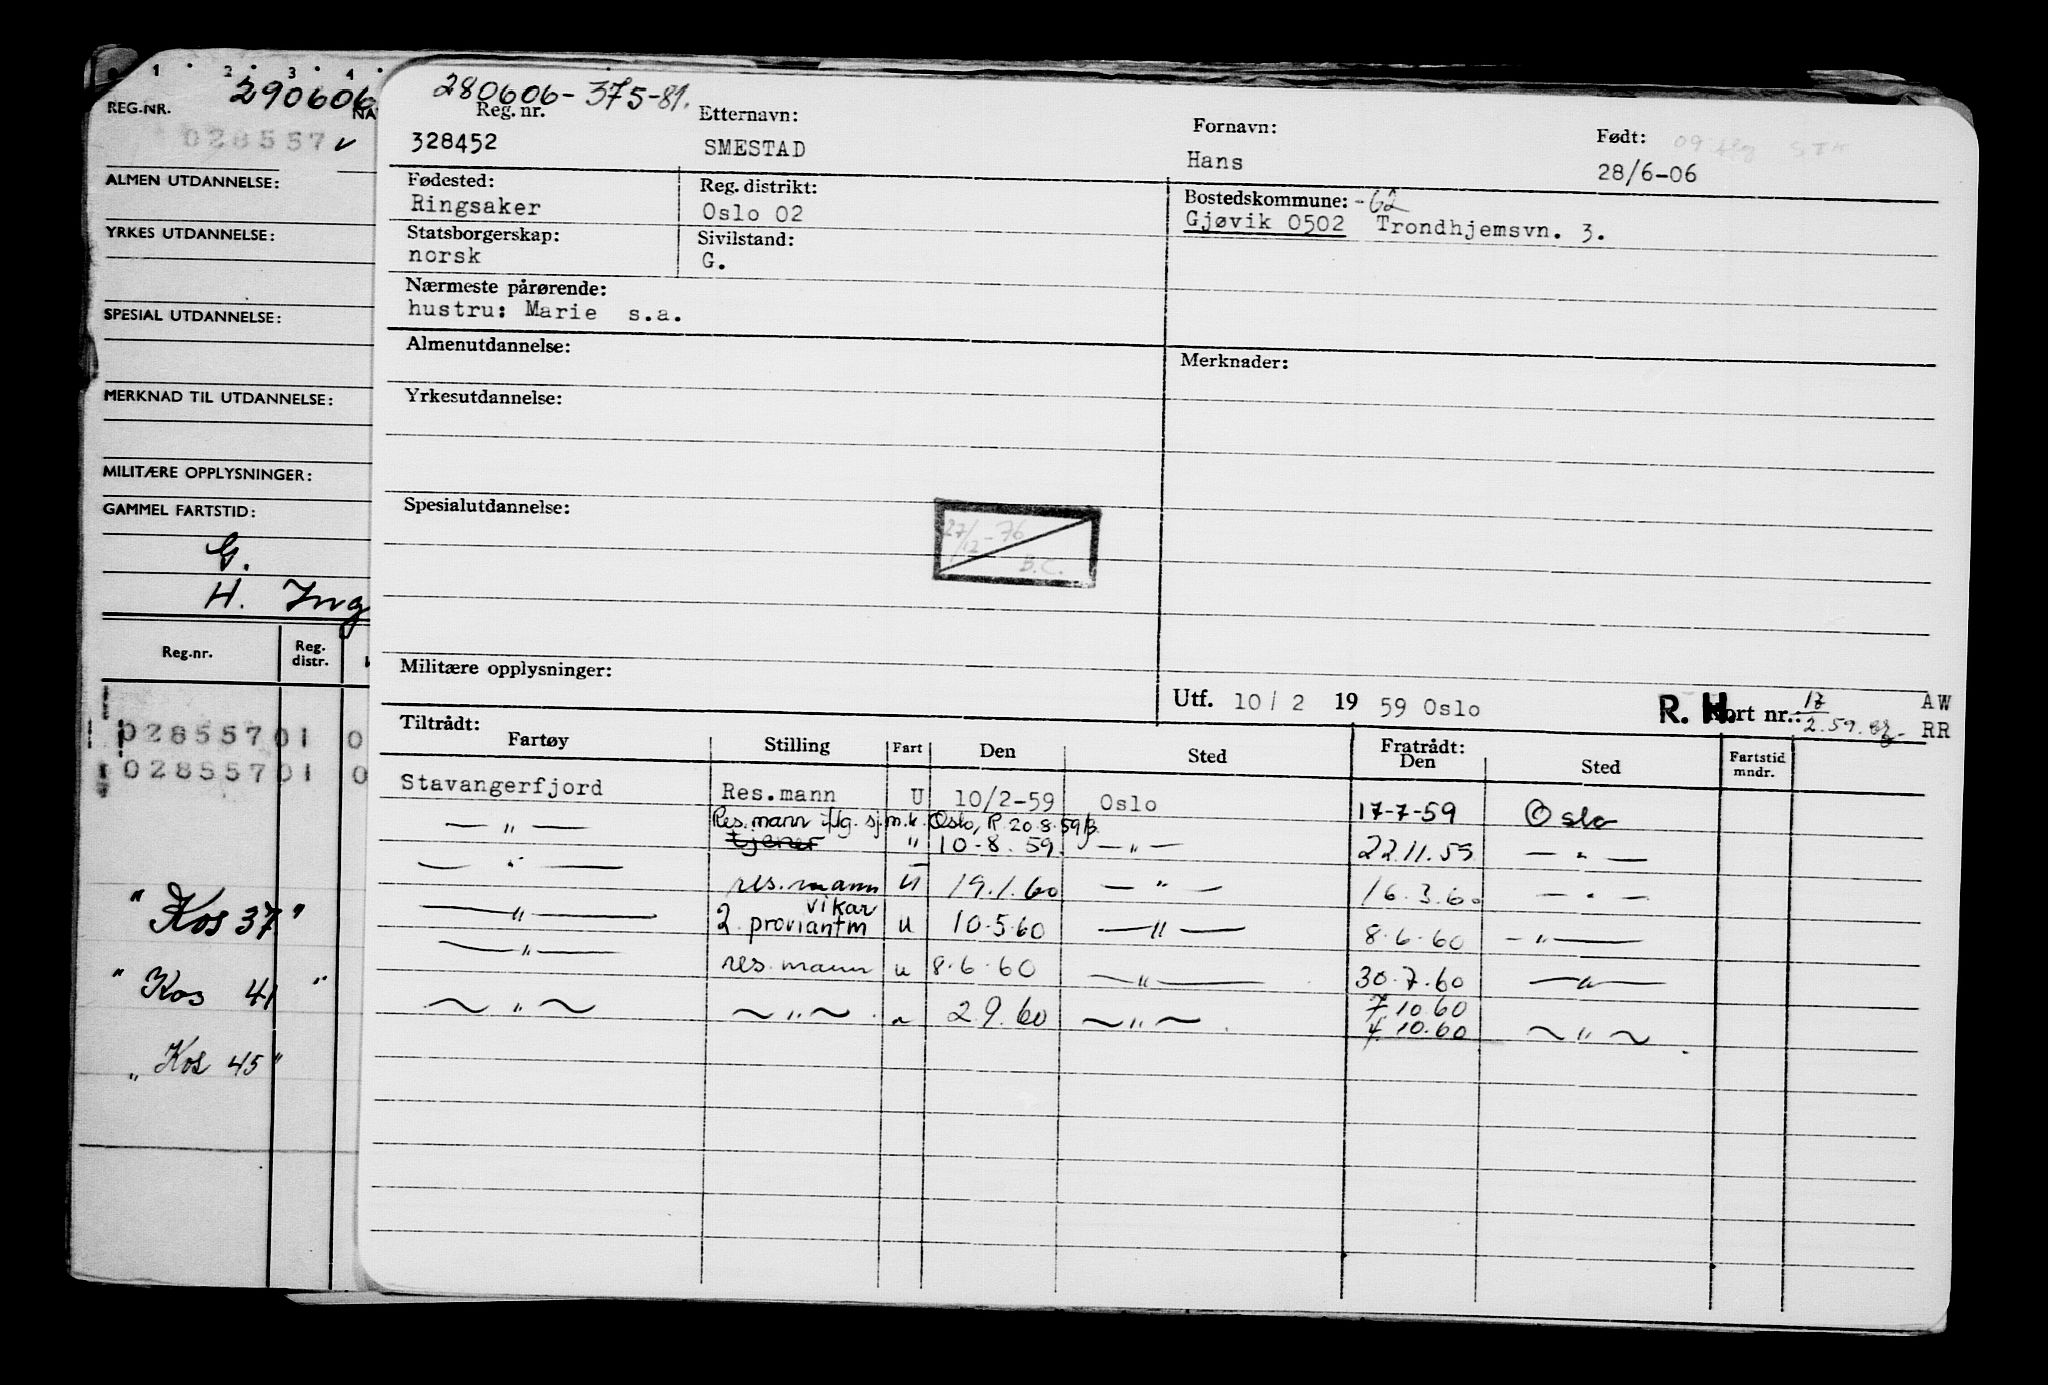 1 2 3 4
REG.NR. 290606 NA
028557 v
ALMEN UTDANNELSE:
YRKES UTDANNELSE:
SPESIAL UTDANNELSE:
MERKNAD TIL UTDANNELSE:
MILITÆRE OPPLYSNINGER:
GAMMEL FARTSTID:
G.
H. Ing
Reg.nr. Reg. distr.
028557 01 0
028557 01 0
" Kos 37 "
" Kos 41 "
" Kos 45 "
280606-375-81.
Reg. nr. Etternavn: Fornavn: Født:
328452 SMESTAD Hans 28/6-06
Fødested: Reg. distrikt: Bostedskommune: -62
Ringsaker Oslo 02 Gjøvik 0502 Trondhjemsvn. 3.
Statsborgerskap: Sivilstand:
norsk G.
Nærmeste pårørende:
hustru: Marie s.a.
Almenutdannelse: Merknader:
Yrkesutdannelse:
Spesialutdannelse:
27/12-76
B.C.
Militære opplysninger:
Utf. 10/2 19 59 Oslo R. H. Kort nr.: 17/2.59. AW
RR
Tiltrådt: Fratrådt:
Fartøy Stilling Fart Den Sted Den Sted Fartstid mndr.
Stavangerfjord Res.mann U 10/2-59 Oslo 17-7-59 Oslo
Res. mann iflg. sj.m.k. Oslo, R. 20.8.59
— " — tjener " 10-8.59. — " — 22.11.59 — " —
— " — res. mann U 19.1.60 — " — 16.3.60 — " —
vikar
— " — 2. proviantm u 10.5.60 — " — 8.6.60 — " —
— " — res. mann u 8.6.60 — " — 30.7.60 — " —
7.10.60
— " — — " — " 2.9.60 — " — 4.10.60 — " —